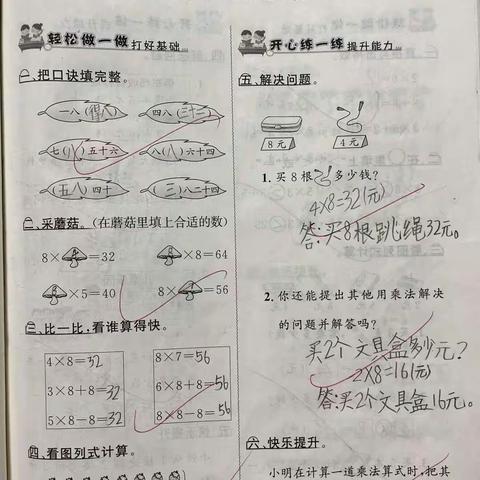 轻松做一做 打好基础
一、把口诀填完整。
一八(得八) 四八(三十二)
七(八)五十六 八(八)六十四
(五八)四十 (三)八二十四
二、采蘑菇。(在蘑菇里填上合适的数)
8× =32 ×8=64
×5=40 8× =56
三、比一比,看谁算得快。
4×8=32 8×7=56
3×8+8=32 6×8+8=56
5×8-8=32 8×8-8=56
四、看图列式计算。
开心练一练 提升能力
五、解决问题。
8元 4元
1.买8根 多少钱?
4×8=32(元)
答:买8根跳绳32元。
2.你还能提出其他用乘法解决
的问题并解答吗?
买2个文具盒多少元?
2×8=16(元)
答:买2个文具盒16元。
六、快乐提升。
小明在计算一道乘法算式时,把其